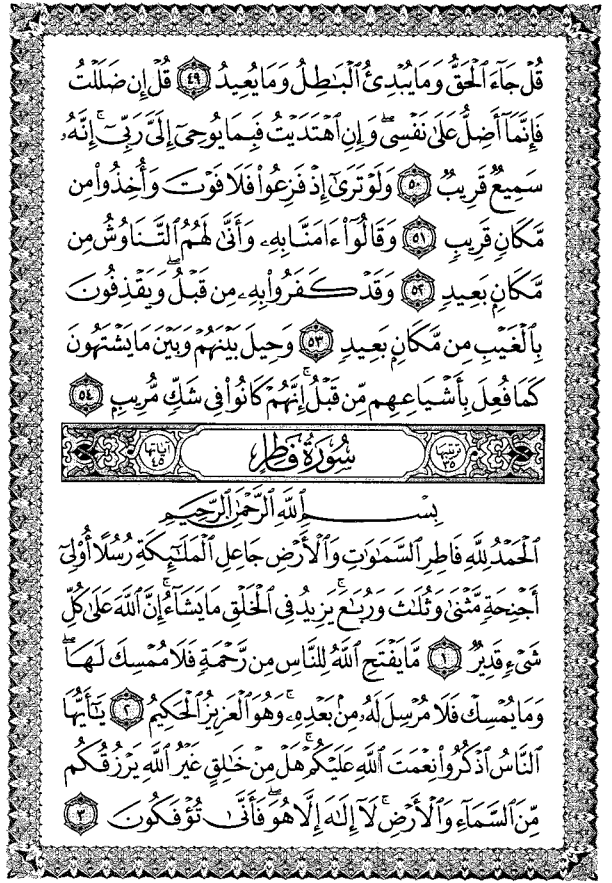 قُلْ جَآءَ ٱلْحَقُّ وَمَا يُبْدِئُ ٱلْبَـٰطِلُ وَمَا يُعِيدُ ٤٩ قُلْ إِن ضَلَلْتُ
فَإِنَّمَآ أَضِلُّ عَلَىٰ نَفْسِىۖ وَإِنِ ٱهْتَدَيْتُ فَبِمَا يُوحِىٓ إِلَىَّ رَبِّىٓۚ إِنَّهُۥ
سَمِيعٌ قَرِيبٌ ٥٠ وَلَوْ تَرَىٰٓ إِذْ فَزِعُوا۟ فَلَا فَوْتَ وَأُخِذُوا۟ مِن
مَّكَانٍ قَرِيبٍ ٥١ وَقَالُوٓا۟ ءَامَنَّا بِهِۦ وَأَنَّىٰ لَهُمُ ٱلتَّنَاوُشُ مِن
مَّكَانٍۭ بَعِيدٍ ٥٢ وَقَدْ كَفَرُوا۟ بِهِۦ مِن قَبْلُۖ وَيَقْذِفُونَ
بِٱلْغَيْبِ مِن مَّكَانٍۭ بَعِيدٍ ٥٣ وَحِيلَ بَيْنَهُمْ وَبَيْنَ مَا يَشْتَهُونَ
كَمَا فُعِلَ بِأَشْيَاعِهِم مِّن قَبْلُۚ إِنَّهُمْ كَانُوا۟ فِى شَكٍّ مُّرِيبٍۭ ٥٤
ترتيبها ٣٥ سُورَةُ فَاطِرٍ آياتها ٤٥
بِسْمِ ٱللَّهِ ٱلرَّحْمَـٰنِ ٱلرَّحِيمِ
ٱلْحَمْدُ لِلَّهِ فَاطِرِ ٱلسَّمَـٰوَٰتِ وَٱلْأَرْضِ جَاعِلِ ٱلْمَلَـٰٓئِكَةِ رُسُلًا أُو۟لِىٓ
أَجْنِحَةٍ مَّثْنَىٰ وَثُلَـٰثَ وَرُبَـٰعَۚ يَزِيدُ فِى ٱلْخَلْقِ مَا يَشَآءُۚ إِنَّ ٱللَّهَ عَلَىٰ كُلِّ
شَىْءٍ قَدِيرٌ ١ مَّا يَفْتَحِ ٱللَّهُ لِلنَّاسِ مِن رَّحْمَةٍ فَلَا مُمْسِكَ لَهَاۖ
وَمَا يُمْسِكْ فَلَا مُرْسِلَ لَهُۥ مِنۢ بَعْدِهِۦۚ وَهُوَ ٱلْعَزِيزُ ٱلْحَكِيمُ ٢ يَـٰٓأَيُّهَا
ٱلنَّاسُ ٱذْكُرُوا۟ نِعْمَتَ ٱللَّهِ عَلَيْكُمْۚ هَلْ مِنْ خَـٰلِقٍ غَيْرُ ٱللَّهِ يَرْزُقُكُم
مِّنَ ٱلسَّمَآءِ وَٱلْأَرْضِۚ لَآ إِلَـٰهَ إِلَّا هُوَۖ فَأَنَّىٰ تُؤْفَكُونَ ٣